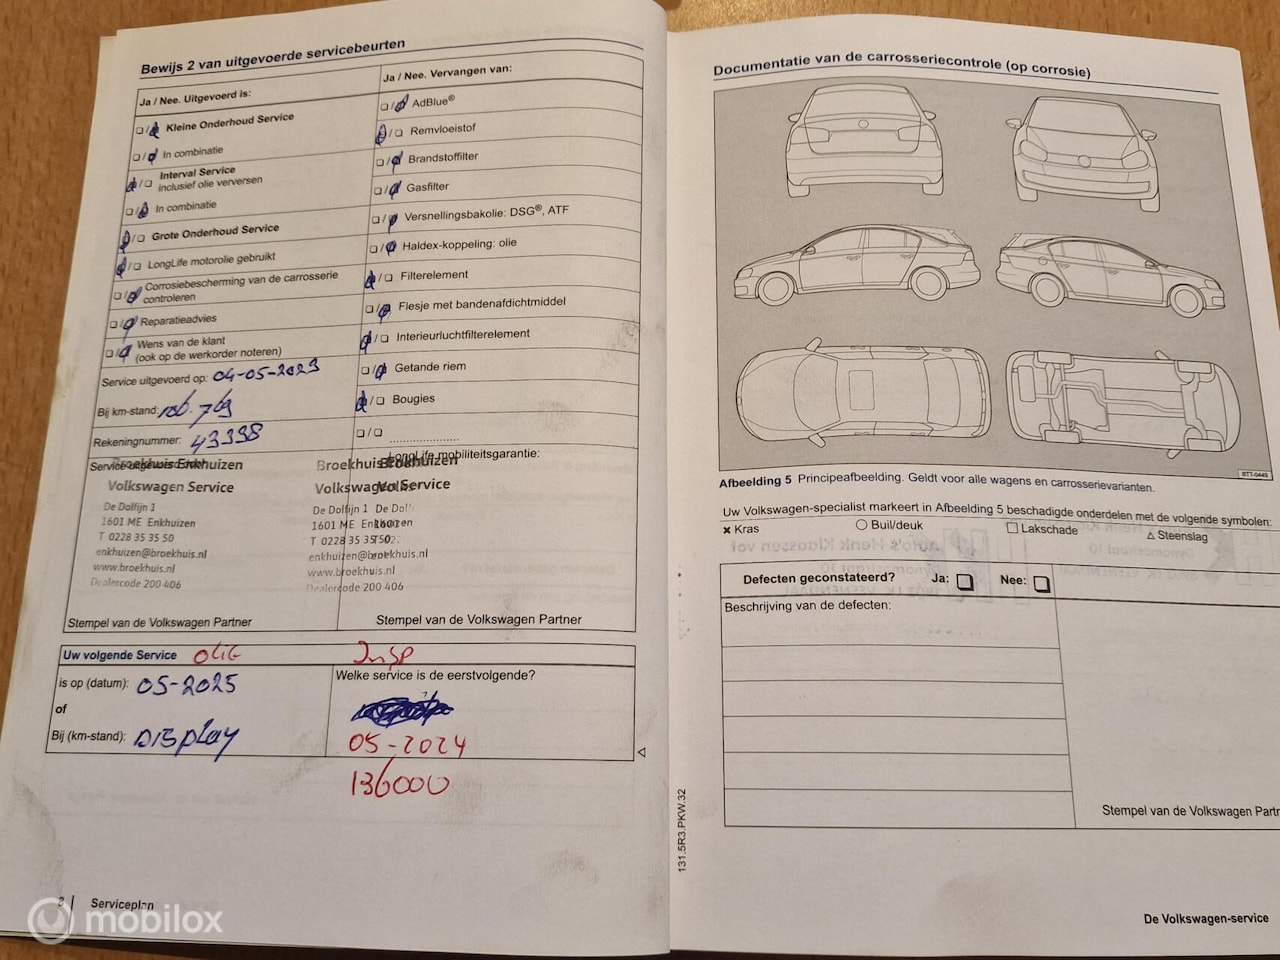 Bewijs 2 van uitgevoerde servicebeurten
Ja / Nee. Uitgevoerd is:
Kleine Onderhoud Service
In combinatie
Interval Service
inclusief olie verversen
In combinatie
Grote Onderhoud Service
LongLife motorolie gebruikt
Corrosiebescherming van de carrosserie
controleren
Reparatieadvies
Wens van de klant
(ook op de werkorder noteren)
Service uitgevoerd op: 04-05-2023
Bij km-stand: 106.769
Rekeningnummer: 43398
Ja / Nee. Vervangen van:
AdBlue®
Remvloeistof
Brandstoffilter
Gasfilter
Versnellingsbakolie: DSG®, ATF
Haldex-koppeling: olie
Filterelement
Flesje met bandenafdichtmiddel
Interieurluchtfilterelement
Getande riem
Bougies
LongLife mobiliteitsgarantie:
Broekhuis Enkhuizen
Volkswagen Service
De Dolfijn 1
1601 ME Enkhuizen
T 0228 35 35 50
enkhuizen@broekhuis.nl
www.broekhuis.nl
Dealercode 200 406
Stempel van de Volkswagen Partner
Broekhuis Enkhuizen
Volkswagen Service
De Dolfijn 1
1601 ME Enkhuizen
T 0228 35 35 50
enkhuizen@broekhuis.nl
www.broekhuis.nl
Dealercode 200 406
Stempel van de Volkswagen Partner
Uw volgende Service olie Insp
is op (datum): 05-2025
of
Bij (km-stand): Display
Welke service is de eerstvolgende?
05-2024
136000
Serviceplan
mobilox
131.5R3.PKW.32
Documentatie van de carrosseriecontrole (op corrosie)
BTT-0449
Afbeelding 5 Principeafbeelding. Geldt voor alle wagens en carrosserievarianten.
Uw Volkswagen-specialist markeert in Afbeelding 5 beschadigde onderdelen met de volgende symbolen:
Kras Buil/deuk Lakschade Steenslag
Defecten geconstateerd? Ja: Nee:
Beschrijving van de defecten:
Stempel van de Volkswagen Partn
De Volkswagen-service